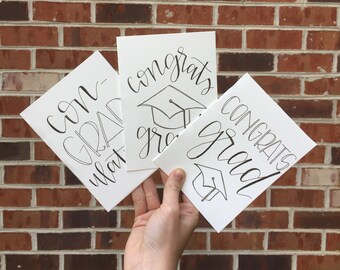 con-
GRAD
ulat
congrats
grad
CONGRATS
grad